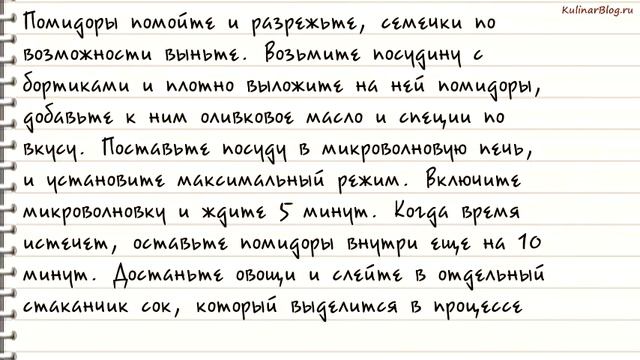 KulinarBlog.ru
Помидоры помойте и разрежьте, семечки по
возможности выньте. Возьмите посудину с
бортиками и плотно выложите на ней помидоры,
добавьте к ним оливковое масло и специи по
вкусу. Поставьте посуду в микроволновую печь,
и установите максимальный режим. Включите
микроволновку и ждите 5 минут. Когда время
истечет, оставьте помидоры внутри еще на 10
минут. Достаньте овощи и слейте в отдельный
стаканчик сок, который выделится в процессе